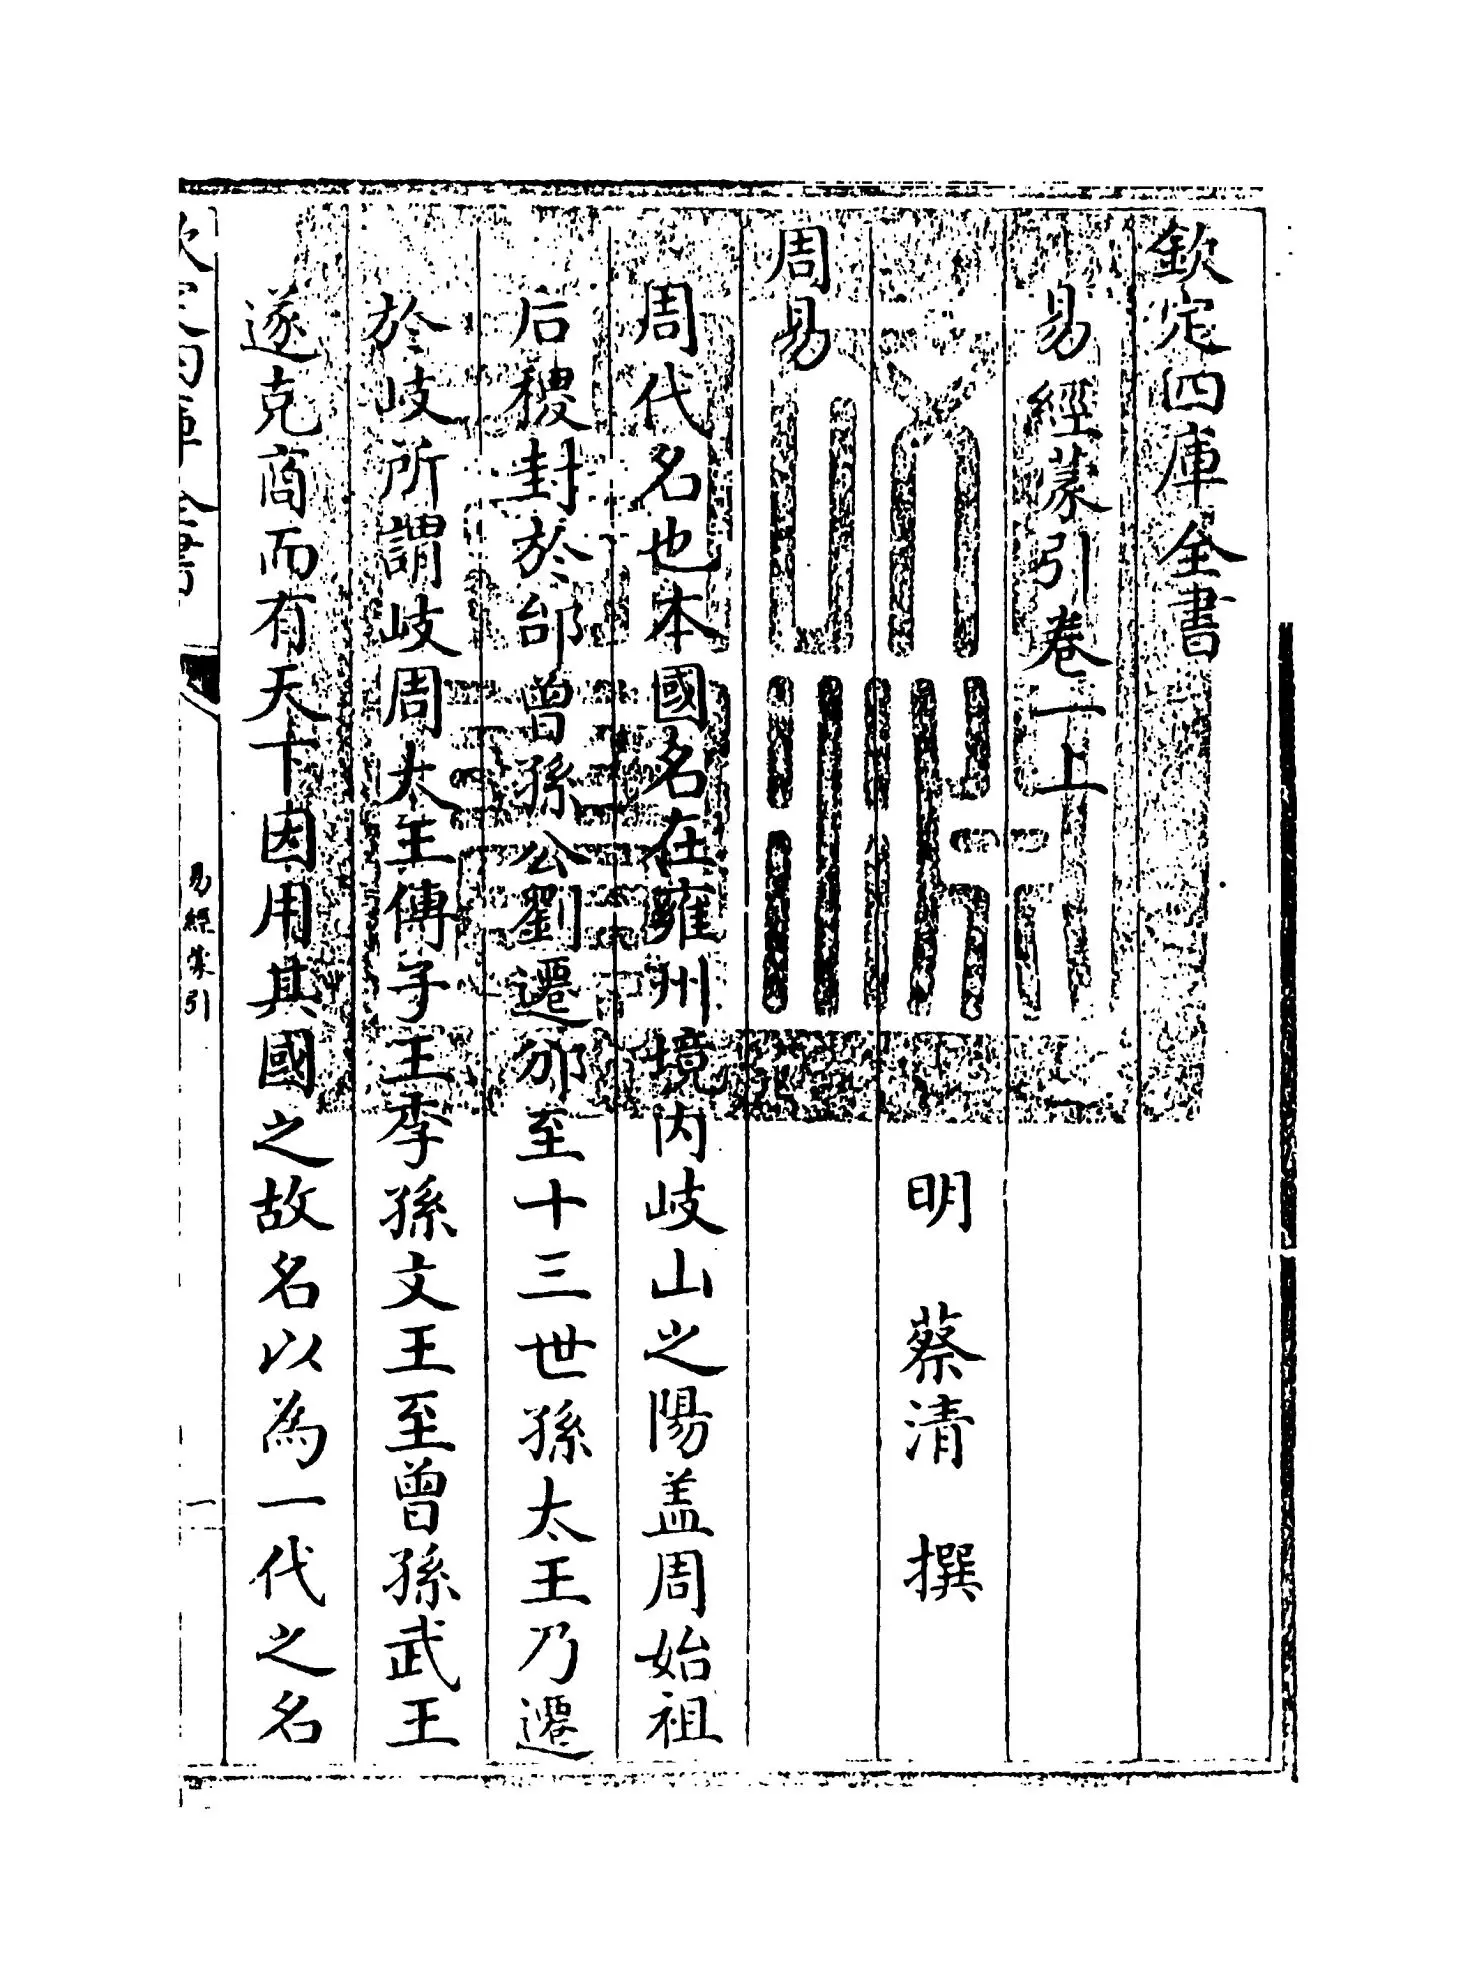 欽定四庫全書
易經蒙引卷一上
明 蔡清 撰
周易
周代名也本國名在雍州境内岐山之陽盖周始祖
后稷封於邰曾孫公劉遷邠至十三世孫太王乃遷
於岐所謂岐周太王傳子王季孫文王至曾孫武王
遂克商而有天下因用其國之故名以為一代之名
易經蒙引
一